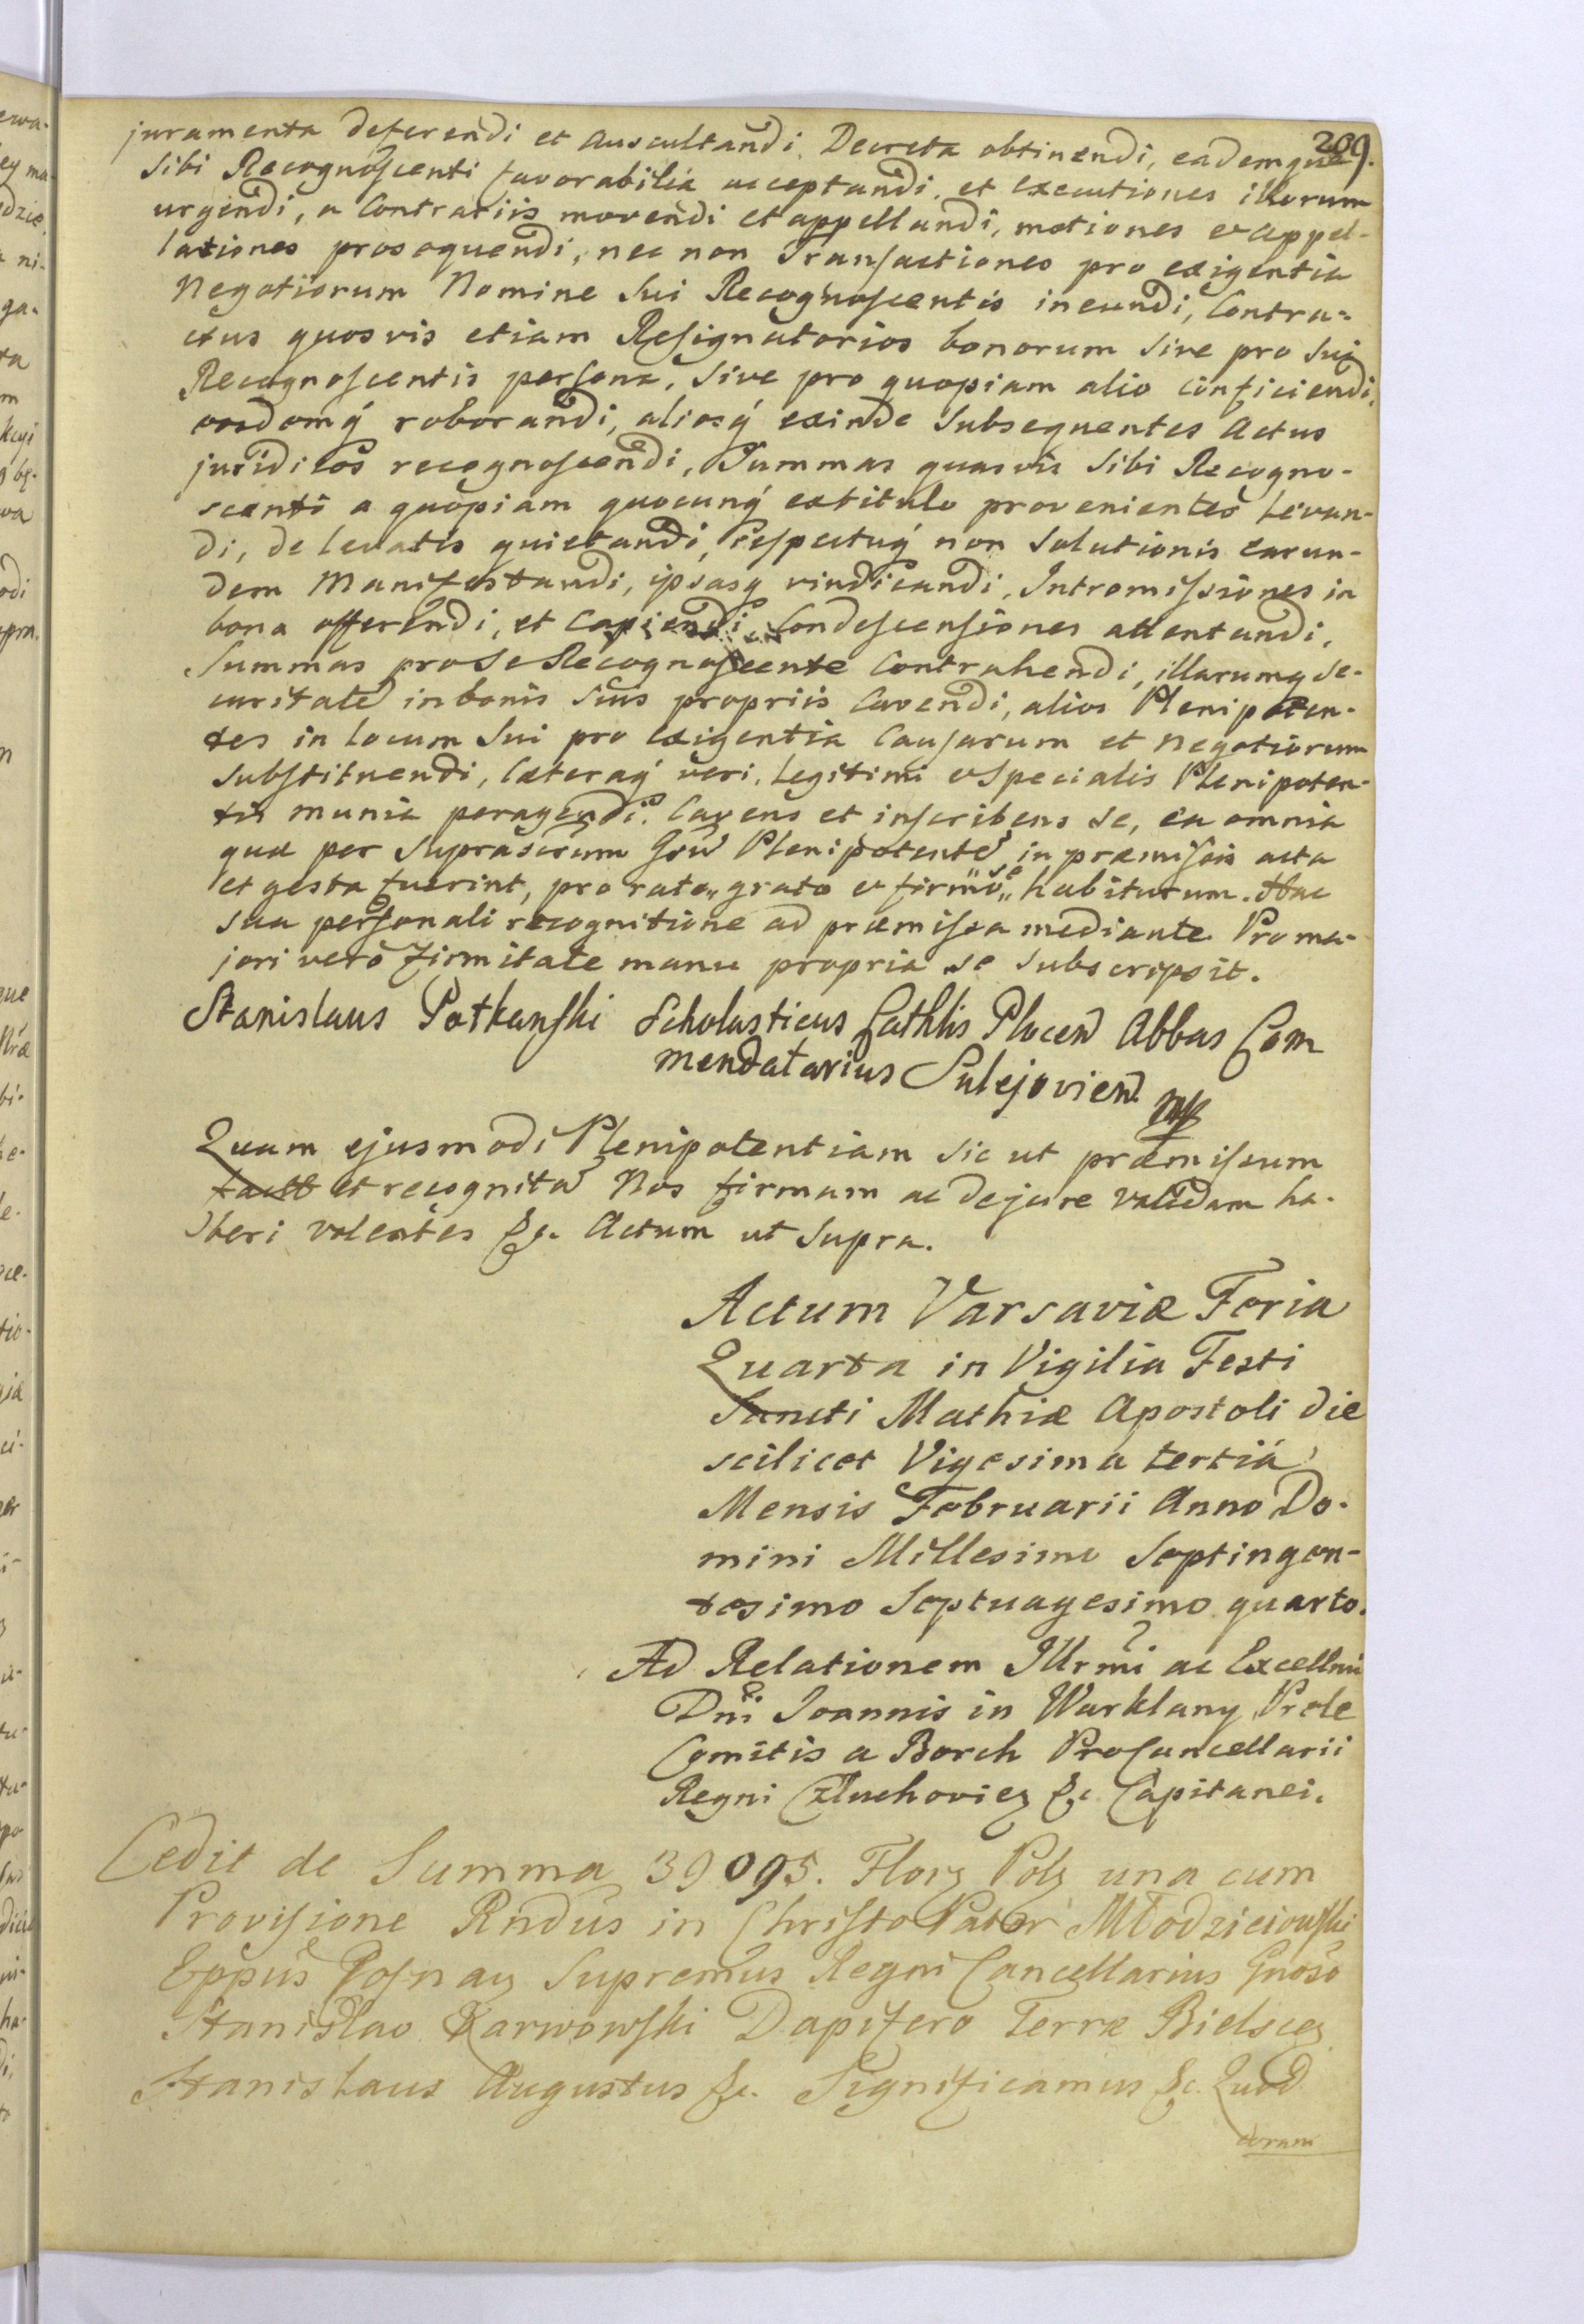 209.
juramenta deferendi et auscultandi, Decreta obtinendi, eademque
sibi Recognoscenti favorabilia acceptandi, et executiones illorum
urgendi, a Contrariis movendi et appellandi, motiones et appel-
lationes prosequendi, nec non Transactiones pro exigentia
Negotiorum Nomine sui Recognoscentis ineundi, Contra-
ctus quosvis etiam Resignatorios bonorum sive pro sui
Recognoscentis persona, sive pro quopiam alio conficiendi,
eosdemq́ roborandi, aliosq́ exinde subsequentes actus
juridicos recognoscendi, Summas quasvis sibi Recogno-
scenti a quopiam quocunq́ ex titulo provenientes levan-
di, de levatis quietandi, respectuq́ non solutionis earun-
dem Manifestandi, ipsasq vindicandi, Intromissiones in
bona offerendi, et Capiendi Condescensiones attentandi,
Summas pro se Recognoscente Contrahendi, illarumq se-
curitate in bonis suis propriis Cavendi, alios Plenipoten-
tes in locum sui pro exigentia Causarum et negotiorum
substituendi, Cæteraq́ veri, legitimi et specialis Plenipoten-
tis munia peragendi. Cavens et inscribens se, ea omnia
quæ per suprascrum Gsũ Plenipotentẽ in præmissis acta
et gesta fuerint, pro rato, grato et firmo se habiturum. Hac
sua personali recognitione ad præmissa mediante. Pro ma-
jori vero firmitate manu propria se subscripsit.
Stanislaus Potkanski Scholasticus Cathlis Plocen Abbas Com
mendatarius Sulejovien mp
Quam ejusmodi Plenipotentiam sic ut præmissum
et recognitã Nos firmam ac de jure validam ha-
beri volentes &c. Actum ut supra.
Actum Varsaviæ Feria
Quarta in Vigilia Festi
Sancti Mathiæ Apostoli die
scilicet Vigesima tertia
Mensis Februarii Anno Do-
mini Millesimo Septingen-
tesimo Septuagesimo quarto.
Ad Relationem Illrmi ac Excellmi
Dni Joannis in Warklany Prele
Comitis a Borch ProCancellarii
Regni Człuchovien &c. Capitanei.
Cedit de Summa 39095. Flor Pol una cum
Provisione Rndus in Christo Pater Młodzieiowski
Eppus Posnan Supremus Regni Cancellarius Gnoso
Stanislao Karwowski Dapifero Terræ Bielscen
Stanislaus Augustus &c. Significamus &c. Quod